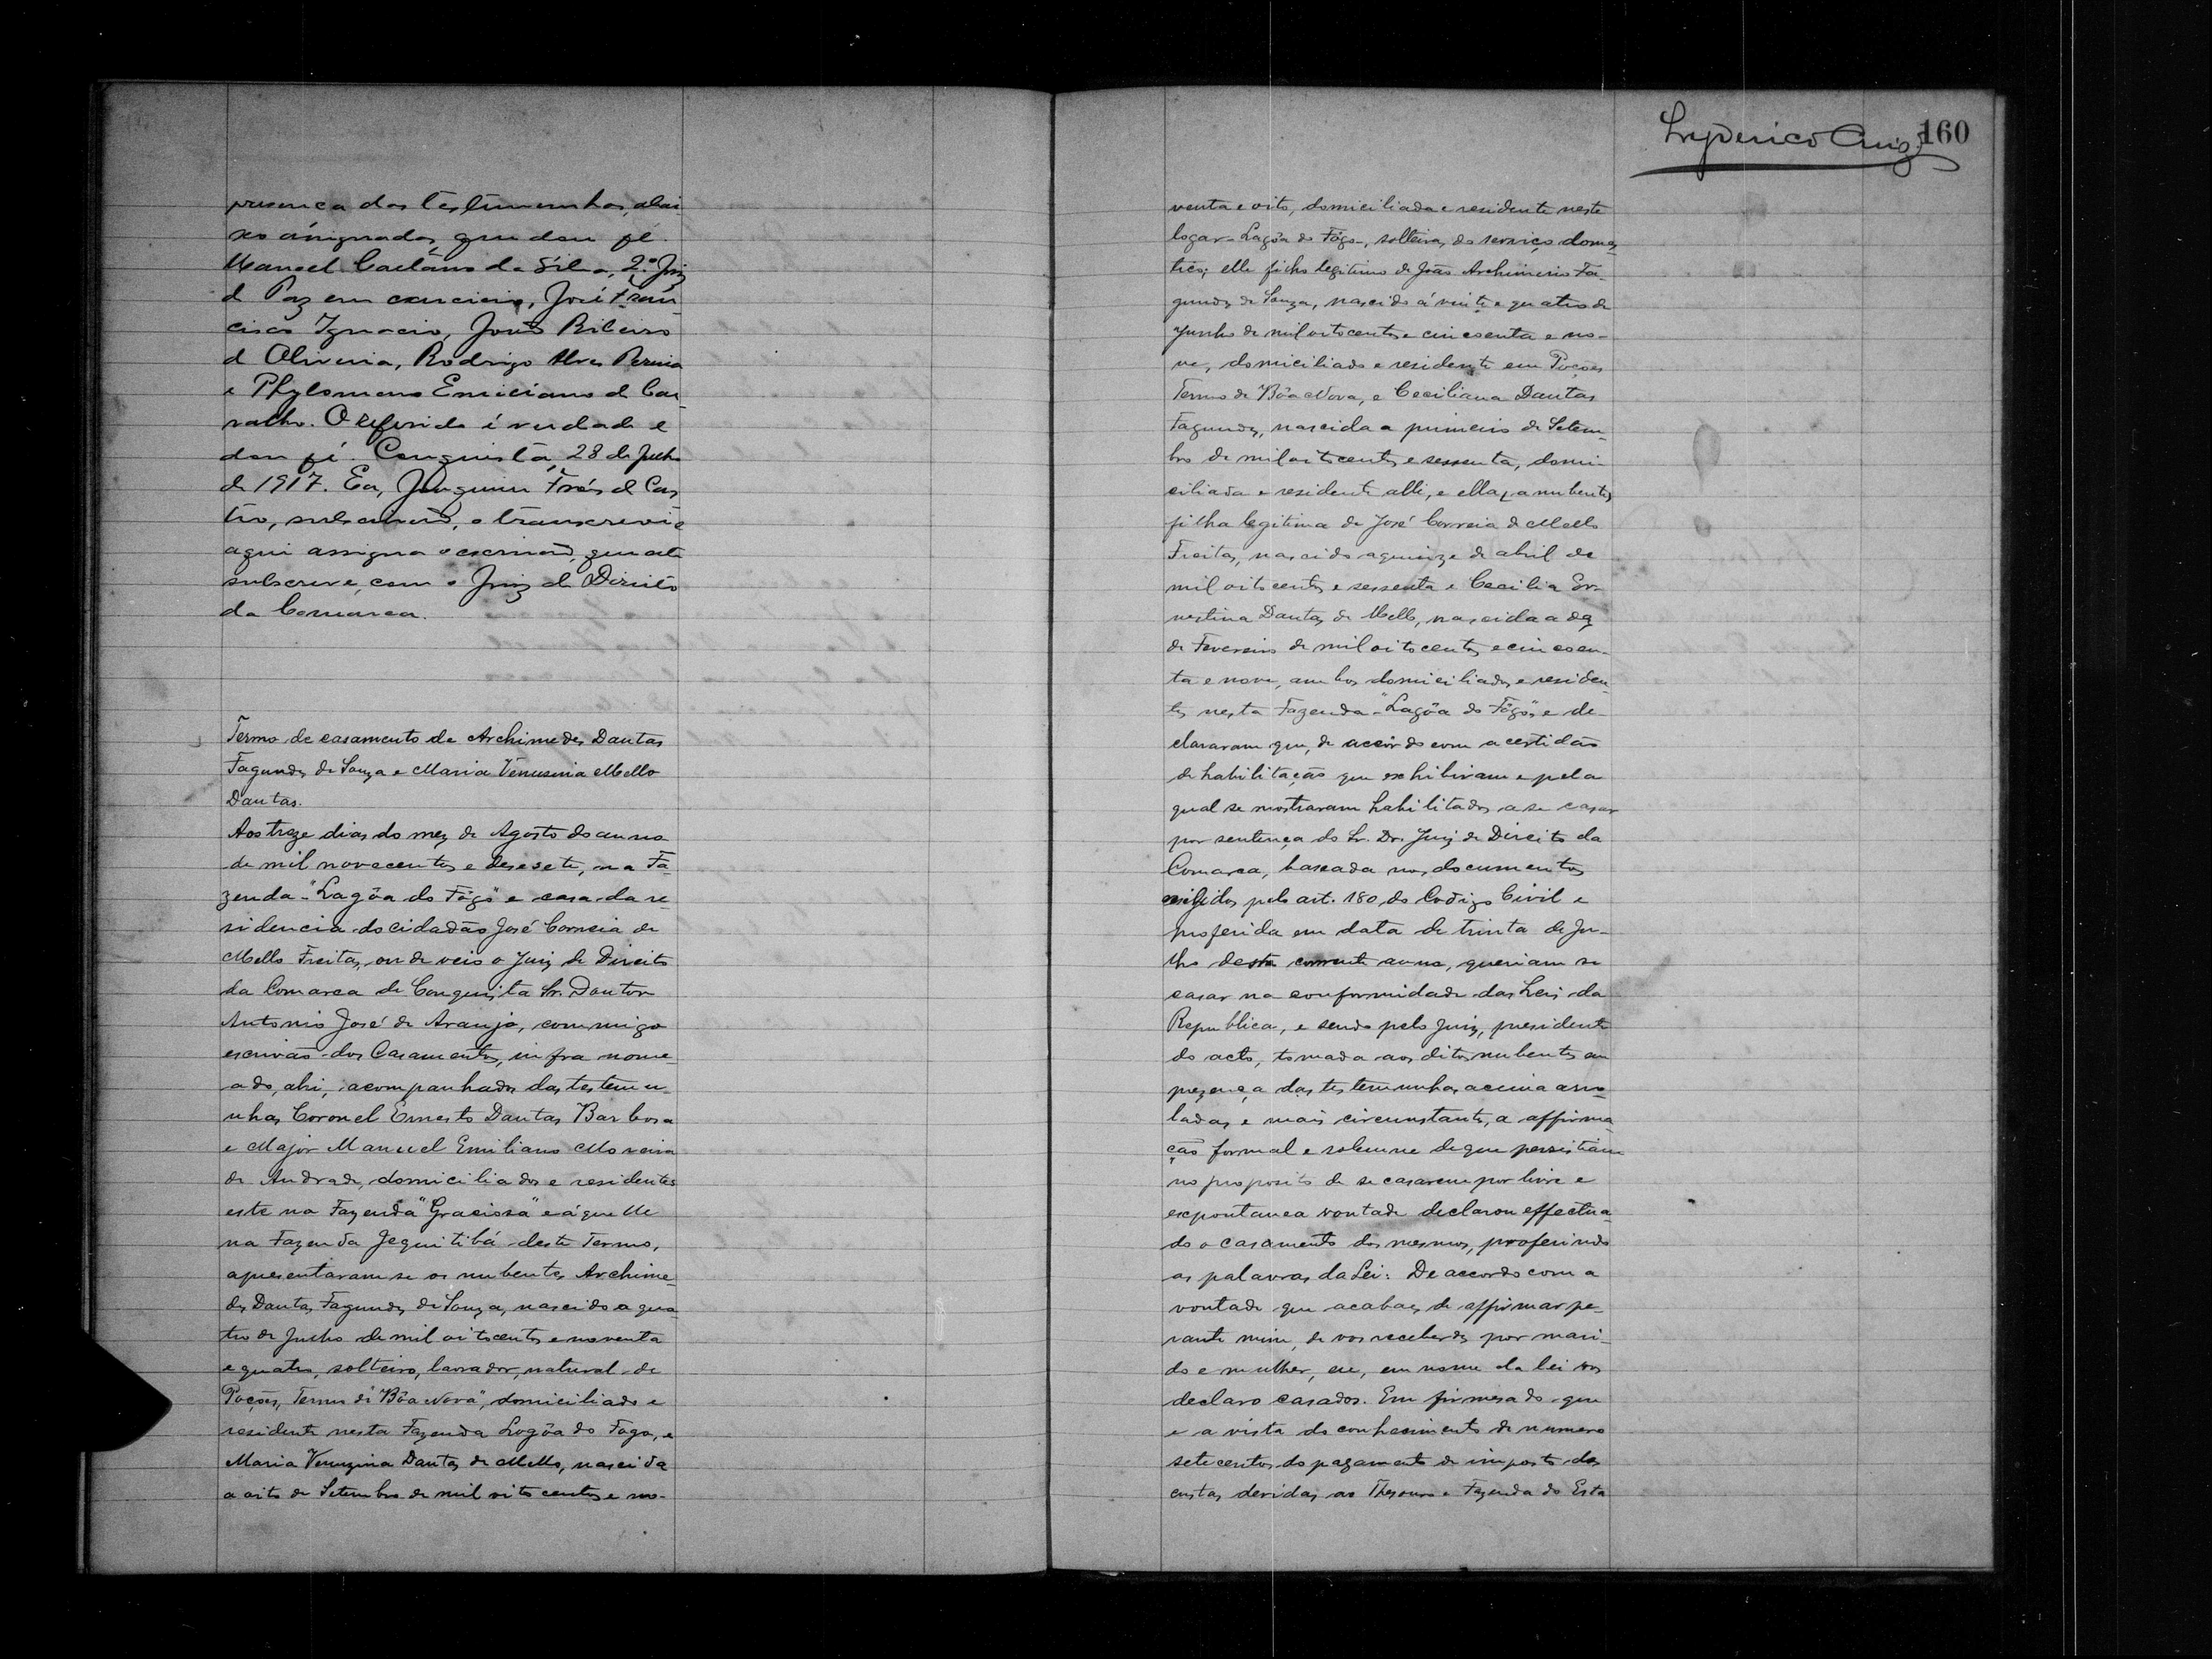 presença das testimunhas, abai
xo assignadas, que dou fé.
Manoel Caetano da Silva, 2º Juiz
d Paz em exercicio, José Fran
cisco Ignacio, João Ribeiro
d Oliveira, Rodrigo Alves Pereira
e Phylomeno Emiciano d Car
valho. O referido é verdade e
dou fé. Conquista, 28 de Julho
de 1917. Eu, Joaquim Fróes d Cas
tro, subscrivão, o transcrevi e
aqui assigna o escrivão, que este
subscreve, com o Juiz de Direito
da Comarca.
Termo de casamento de Archimedes Dantas
Fagundes de Souza e Maria Venusina Mello
Dantas.
Aos treze dias do mez de Agosto do anno
de mil novecentos e desesete, na Fa
zenda "Lagôa do Fôgo" e casa da re-
sidencia do cidadão José Correia de
Mello Freitas, onde veio o Juiz de Direito
da Comarca de Conquista Sr. Doutor
Antonio José de Araujo, commigo
escrivão dos Casamentos, infra nome-
ado, ahi, acompanhados das testemu-
nhas Coronel Ernesto Dantas Barbosa
e Major Manuel Emiliano Moreira
de Andrade, domiciliados e residentes
este na Fazenda "Graciosa" e áquelle
na Fazenda Jequitibá deste Termo,
apresentaram se os nubentes Archime-
des Dantas Fagundes de Souza, nascido a qua
tro de Junho de mil oitocentos e noventa
e quatro, solteiro, lavrador, natural de
Poções, Termo de "Bôa Nova", domiciliado e
residente nesta Fazenda Lagôa do Fogo, e
Maria Venuzina Dantas de Mello, nascida
a oito de Setembro de mil oitocentos e no-
160
venta e oito, domiciliada e residente neste
logar Lagôa do Fôgo, solteira, do serviço domes
tico; elle filho legitimo de João Archiminio Fa-
gundes de Souza, nascido á vinte e quatro de
Junho de mil oitocentos e cincoenta e no-
ve, domiciliado e residente em Poções
Termo de Bôa Nova, e Ceciliana Dantas
Fagundes, nascida a primeiro de Setem-
bro de mil oitocentos e sessenta, domi-
ciliada e residente alli, e ella, a nubente,
filha legitima de José Correia de Mello
Freitas, nascido a quinze de abril de
mil oitocentos e sessenta e Cecilia Er-
nestina Dantas de Mello, nascida a dez
de Fevereiro de mil oitocentos e cincoen-
ta e nove, ambos domiciliados e residen-
tes nesta Fazenda "Lagôa do Fôgo", e de-
clararam que, de accôrdo com a certidão
de habilitação que exhibiram e pela
qual se mostraram habilitados a se casar
por sentença do Sr. Dr. Juiz de Direito da
Comarca, baseada nos documentos
exigidos pelo art. 180 do Codigo Civil e
proferida em data de trinta de Ju-
lho deste corrente anno, queriam se
casar na conformidade das Leis da
Republica, e sendo pelo Juiz, presidente
do acto, tomada aos ditos nubentes em
prezença das testemunhas acima arro-
ladas e mais circumstantes, a affirma-
ção formal e solemne de que persistiam
no proposito de se casarem por livre e
expontanea vontade declarou effectua-
do o casamento dos mesmos, proferindo
as palavras da Lei: De accordo com a
vontade que acabaes de affirmar pe-
rante mim, de vos receberdes por mari-
do e mulher, eu, em nome da lei vos
declaro casados. Em firmesa do que
e a vista do conhecimento de numero
setecentos do pagamento de imposto das
custas devidas ao Thesouro e Fazenda do Esta